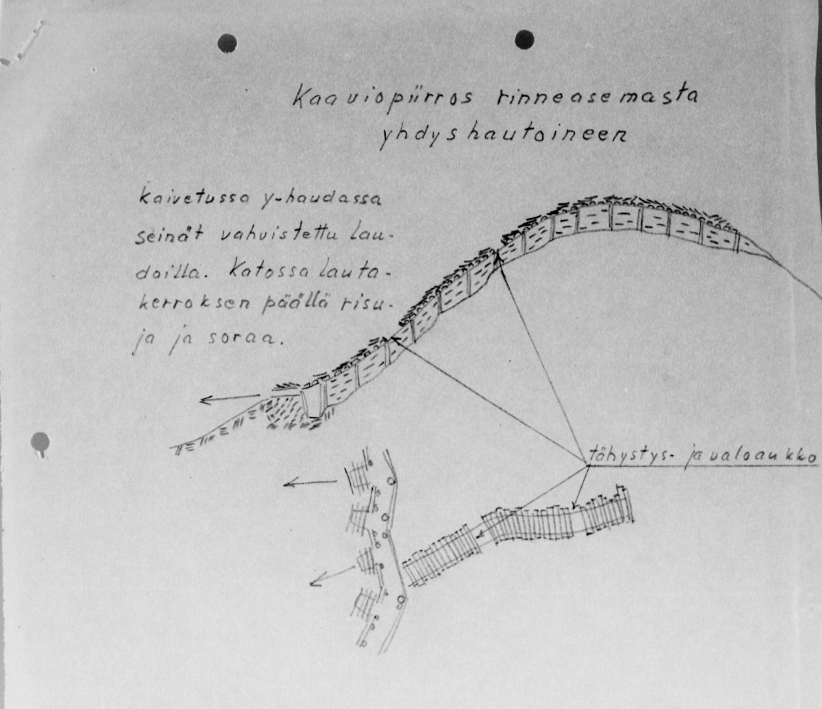 Kaaviopiirros rinneasemasta
yhdyshautoineen
Kaivetussa y-haudassa
seinät vahvistettu lau-
doilla. Katossa lauta-
kerroksen päällä risu-
ja ja soraa.
tähystys- ja valoaukko